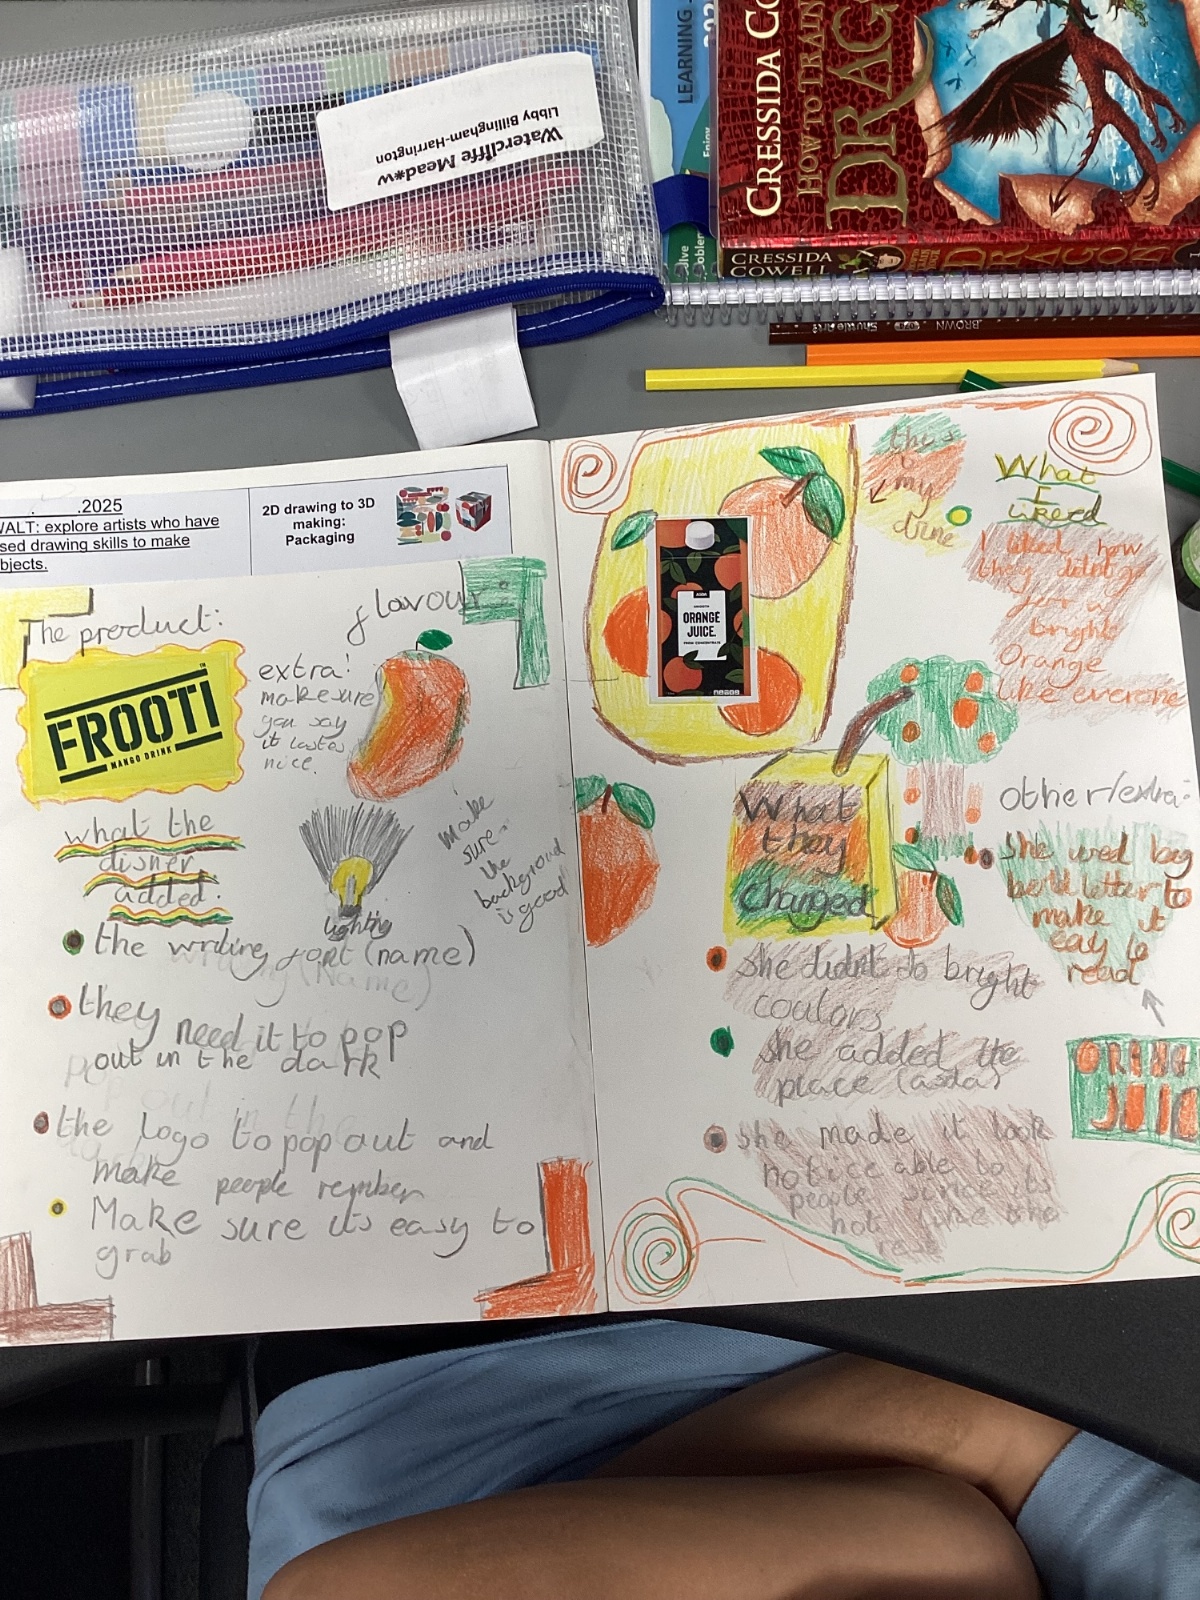 Watercliffe Mead*w
Libby Billingham-Harrington
LEARNING
Enjoy
CRESSIDA CO
HOW TO TRAIN
DRAG
CRESSIDA
COWELL
BROWN
Shuttle Art
.2025
WALT: explore artists who have
sed drawing skills to make
bjects.
2D drawing to 3D
making:
Packaging
The product:
flavour:
FROOTI
MANGO DRINK
TM
extra!
make sure
you say
it tastes
nice.
what the
disner
added.
lighting
make
sure
the
background
is good
the writing font (name)
they need it to pop
out in the dark
the logo to pop out and
make people rember
Make sure it's easy to
grab
this
is my
drine
What
I
liked
I liked how
they didnt go
for a
bright
Orange
like everone
ASDA
SMOOTH
ORANGE
JUICE.
FROM CONCENTRATE
What
they
changed
she didnt do bright
coulors
she added the
place (asda)
she made it look
notice able to
people since its
not like the
rest
other/extra:
she used big
bold letter to
make it
easy to
read
ORING
JUIC